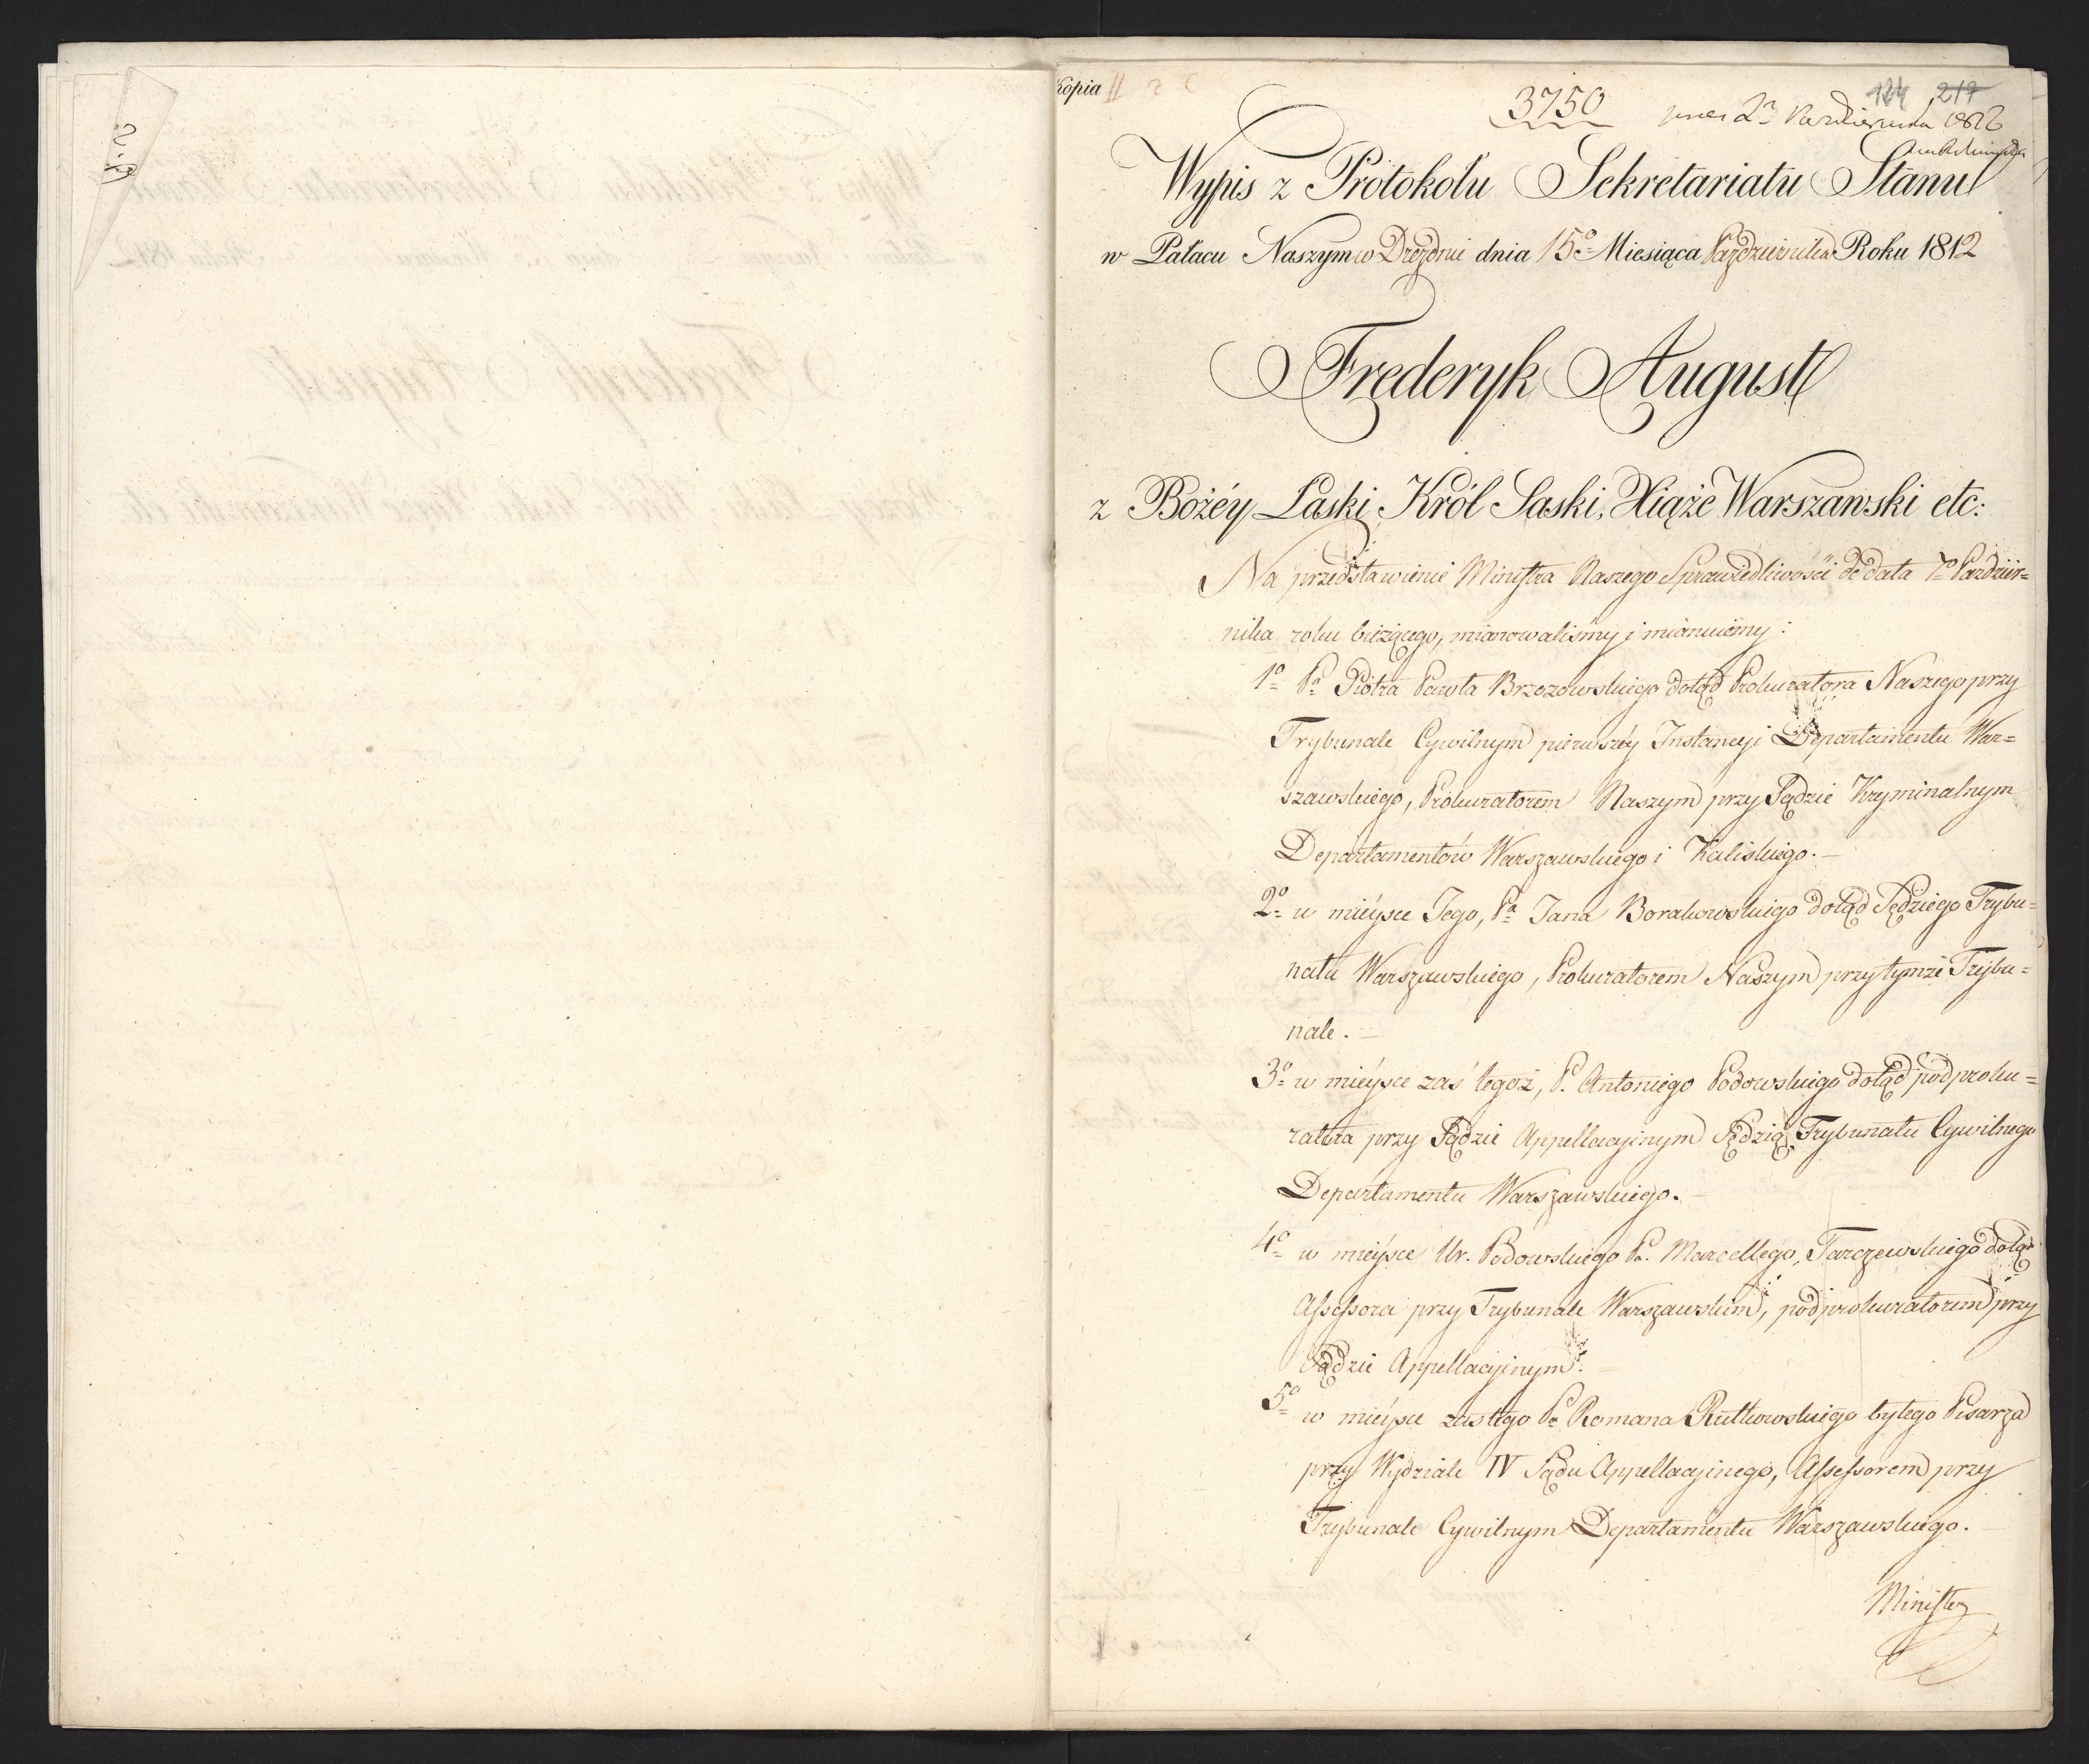 kopia
3750
124 217
Października 1812
Wypis z Protokołu Sekretariatu Stanu
w Pałacu Naszym w Dreźnie dnia 15º Miesiąca Października Roku 1812
Frederyk August
z Bożéy Łaski Król Saski, Xiąże Warszawski etc:
Na przedstawienie Ministra Naszego Sprawiedliwości de dato 7º Paździer=
nika roku bieżącego, mianowaliśmy i mianuiemy:
1º Pª Piotra Pawła Brzozowskiego dotąd Prokuratora Naszego przy
Trybunale Cywilnym pierwszéy Instancyi Departamentu War=
szawskiego, Prokuratorem Naszym przy Sądzie Kryminalnym
Departamentów Warszawskiego i Kaliskiego.—
2º w mieysce Jego, Pª Jana Borakowskiego dotąd Sędziego Trybu=
nału Warszawskiego, Prokuratorem Naszym przy tymże Trybu=
nale.—
3º w mieysce zaś tegoż, P. Antoniego Podowskiego dotąd podproku=
ratora przy Sądzie Appellacyinym Sędzią Trybunału Cywilnego
Departamentu Warszawskiego.—
4º w mieysce Ur. Podowskiego Pa. Marcellego Tarczewskiego dotąd
Assessora przy Trybunale Warszawskim, podprokuratorem przy
Sądzie Appellacyinym.
5º w mieysce zaś tego Pa Romana Rutkowskiego byłego Pisarza
przy Wydziale IV Sądu Appellacyinego, Assessorem przy
Trybunale Cywilnym Departamentu Warszawskiego.
Minister